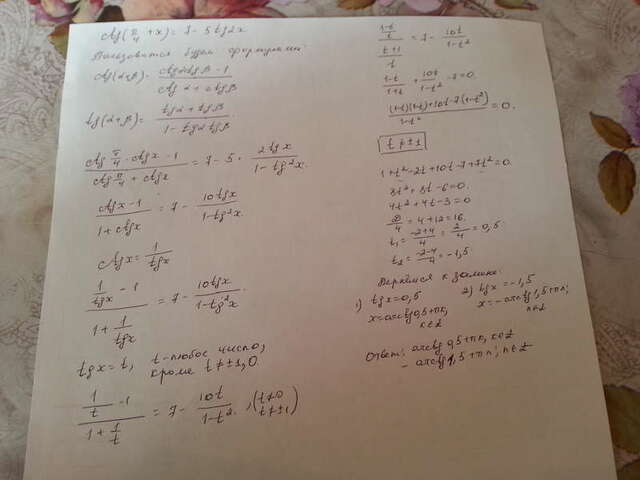 ctg(π/4 + x) = 7 - 5tg2x
Пользоваться будем формулами:
ctg(α+β) = (ctgα ctgβ - 1)/(ctgα + ctgβ)
tg(α+β) = (tgα + tgβ)/(1 - tgα tgβ)
(ctg π/4 · ctgx - 1)/(ctg π/4 + ctgx) = 7 - 5 · 2tgx/(1 - tg²x)
(ctgx - 1)/(1 + ctgx) = 7 - 10tgx/(1 - tg²x)
ctgx = 1/tgx
(1/tgx - 1)/(1 + 1/tgx) = 7 - 10tgx/(1 - tg²x)
tgx = t, t - любое число,
кроме t ≠ ±1, 0.
(1/t - 1)/(1 + 1/t) = 7 - 10t/(1 - t²), (t ≠ 0
t ≠ ±1)
((1-t)/t)/((t+1)/t) = 7 - 10t/(1-t²)
(1-t)/(1+t) + 10t/(1-t²) - 7 = 0.
((1-t)(1-t) + 10t - 7(1-t²))/(1-t²) = 0.
t ≠ ±1
1 + t² - 2t + 10t - 7 + 7t² = 0.
8t² + 8t - 6 = 0.
4t² + 4t - 3 = 0
D/4 = 4 + 12 = 16.
t₁ = (-2+4)/4 = 2/4 = 0,5
t₂ = (-2-4)/4 = -1,5
Вернёмся к замене:
1) tgx = 0,5
x = arctg 0,5 + πk,
k∈Z
2) tgx = -1,5
x = -arctg 1,5 + πn;
n∈Z
Ответ: arctg 0,5 + πk, k∈Z
- arctg 1,5 + πn; n∈Z